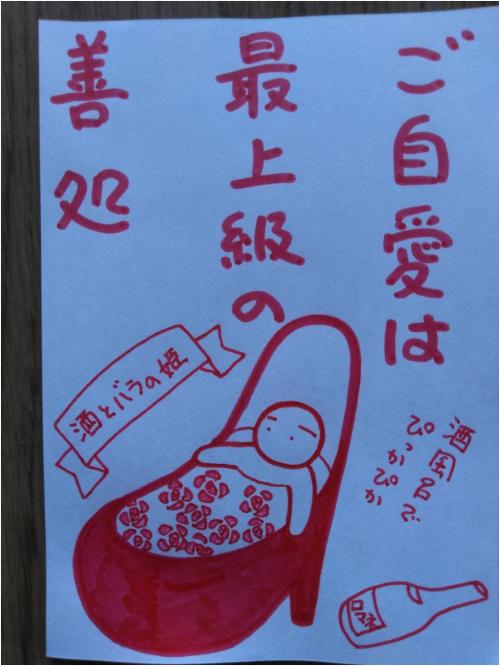 ご自愛は
最上級の
善処
酒とバラの姫
酒風呂で
ぴっかぴか
ロマネ